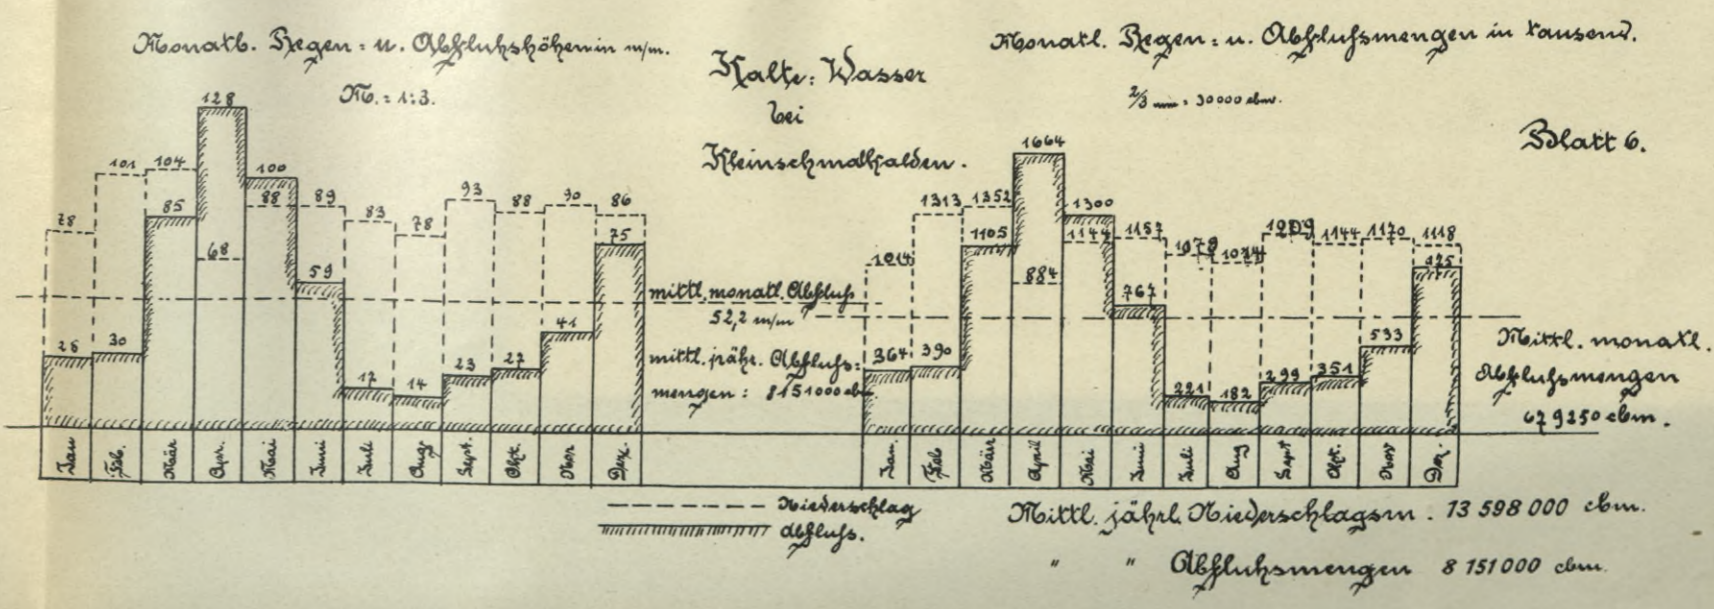 Monatl. Regen- u. Abflußhöhen in m/m.
M. = 1:3.
Kalte-Wasser
bei
Kleinschmalkalden.
Monatl. Regen- u. Abflußmengen in tausend.
2/3 mm = 30000 cbm.
Blatt 6.
78 101 104 128 100 89 83 78 93 88 90 86
28 30 85 68 88 59 17 14 23 27 41 75
mittl. monatl. Abfluß
52,2 m/m
mittl. jähr. Abfluß-
mengen: 8151000 cbm
1014 1313 1352 1664 1300 1157 1079 1014 1209 1144 1170 1118
364 390 1105 884 1144 767 221 182 299 351 533 975
Mittl. monatl.
Abflußmengen
679250 cbm.
Jan Feb. März Apr. Mai Juni Juli Aug Sept. Okt. Nov Dez.
Jan. Feb März April Mai Juni Juli Aug Sept Okt. Nov Dez.
Niederschlag
Abfluß.
Mittl. jährl. Niederschlagsm. 13 598 000 cbm.
" " Abflußmengen 8 151000 cbm.